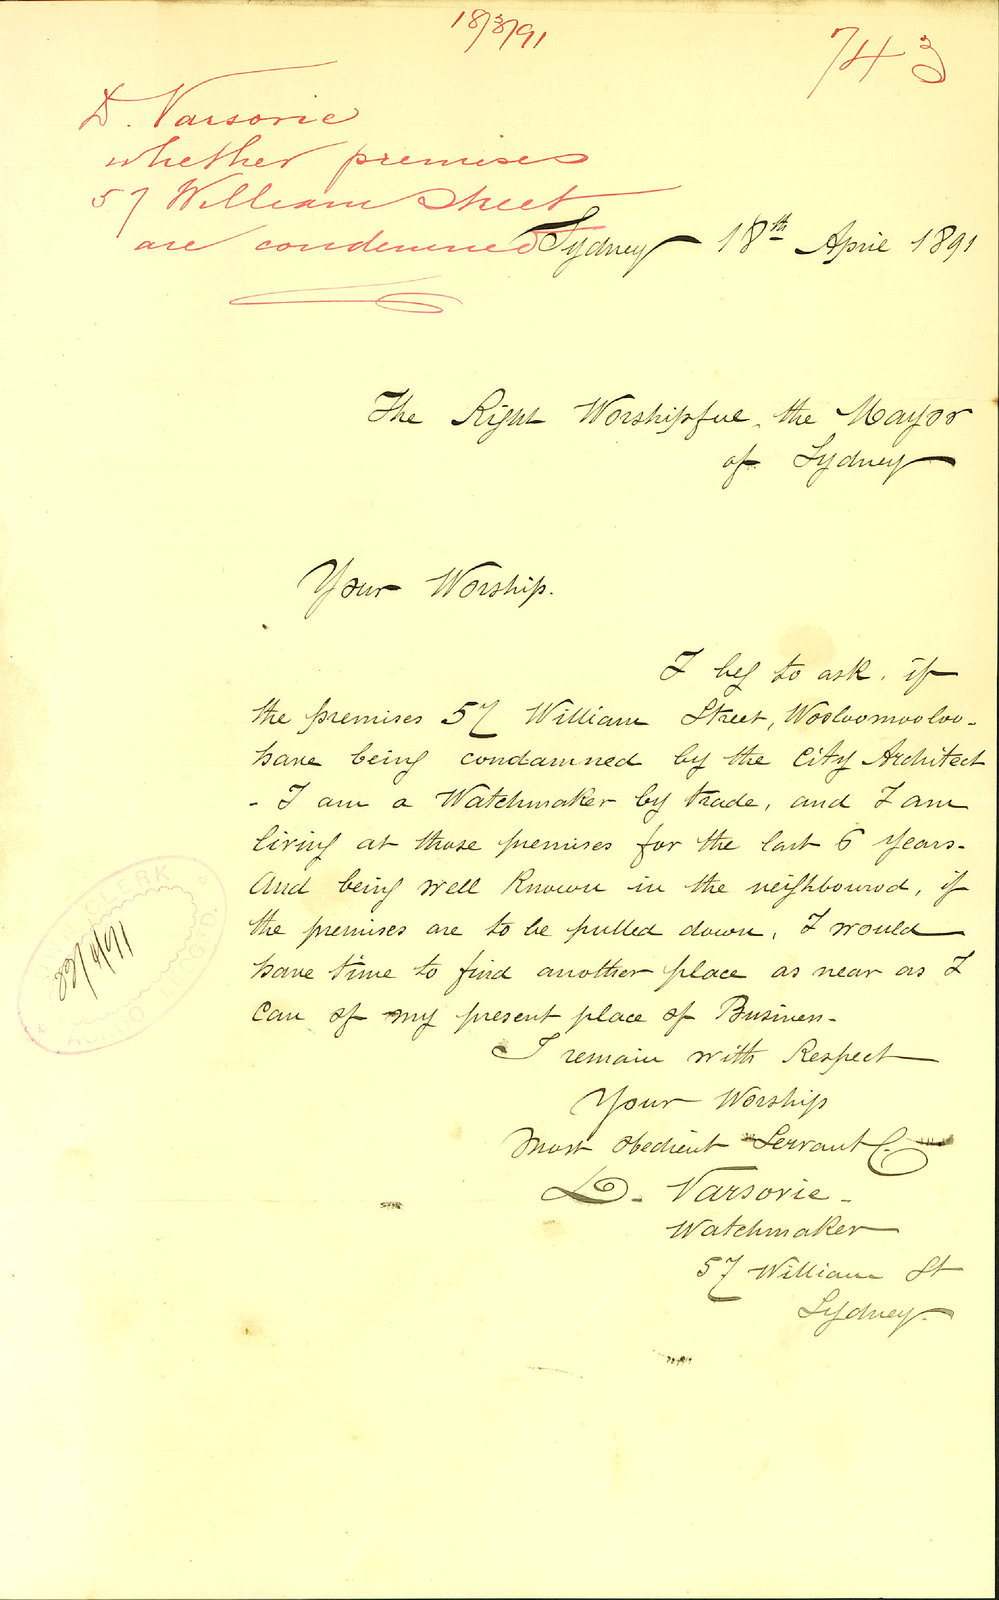 18/3/91
743
D. Varsovie
whether premises
57 William Street
are condemned
Sydney 18th April 1891
The Right Worshipful, the Mayor
of Sydney
Your Worship.
I beg to ask, if
the premises 57 William Street, Wooloomooloo-
have being condamned by the City Architect
- I am a Watchmaker by trade, and I am
living at those premises for the last 6 years-
And being well known in the neighbourod, if
the premises are to be pulled down, I would
have time to find another place as near as I
can of my present place of Business-
I remain with Respect
Your Worship
Most obedient Servant
D. Varsovie-
Watchmaker
57 William St
Sydney.
CLERK
22/4/91